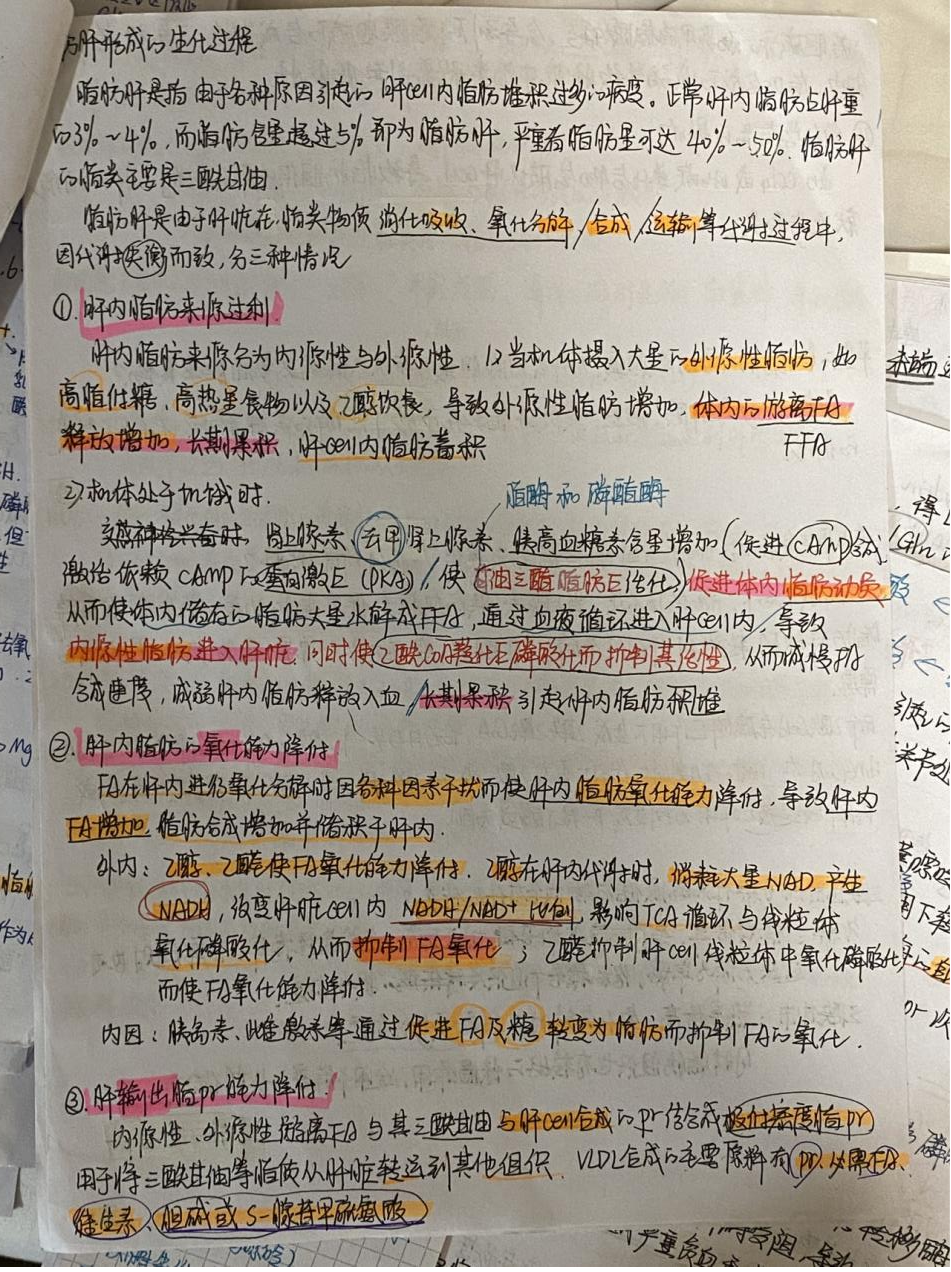 肝形成的生化过程
脂肪肝是指由于各种原因引起的肝cell内脂肪堆积过多的病变。正常肝内脂肪占肝重
的3%~4%,而脂肪含量超过5%即为脂肪肝,严重者脂肪量可达40%~50%.脂肪肝
的脂类主要是三酰甘油.
脂肪肝是由于肝脏在脂类物质消化吸收、氧化分解/合成/运输等代谢过程中,
因代谢失衡而致,分三种情况
①.肝内脂肪来源过剩
肝内脂肪来源分为内源性与外源性. 1)当机体摄入大量的外源性脂肪,如
高脂低糖、高热量食物以及乙醇饮食,导致外源性脂肪增加,体内的游离FA
释放增加,长期累积,肝cell内脂肪蓄积
FFA
2)机体处于饥饿时.
脂酶和磷酯酶
交感神经兴奋时,肾上腺素、去甲肾上腺素、胰高血糖素含量增加(促进cAMP合成
激活依赖cAMP的蛋白激E(PKA)/使甘油三酯脂肪E活化)促进体内脂肪动员
从而使体内储存的脂肪大量水解成FFA,通过血液循环进入肝cell内,导致
内源性脂肪进入肝脏,同时使乙酰CoA羧化E磷酸化而抑制其活性,从而减慢FA
合成速度,减弱肝内脂肪释放入血/长期累积引起肝内脂肪积堆
②.肝内脂肪的氧化能力降低
FA在肝内进行氧化分解时因各种因素干扰而使肝内脂肪氧化能力降低,导致肝内
FA增加,脂肪合成增加并储积于肝内.
外内:乙醇、乙醛使FA氧化能力降低.乙醇在肝内代谢时,消耗大量NAD,产生
NADH,改变肝脏cell内NADH/NAD+比例,影响TCA循环与线粒体
氧化磷酸化,从而抑制FA氧化;乙醛抑制肝cell线粒体中氧化磷酸化
而使FA氧化能力降低.
内因:胰岛素、雌激素等通过促进FA及糖转变为脂肪而抑制FA的氧化.
③.肝输出脂pr能力降低.
内源性、外源性游离FA与其三酰甘油与肝cell合成的pr结合成极低密度脂pr
用于将三酰甘油等脂质从肝脏转运到其他组织. VLDL合成的主要原料有pr、必需FA、
维生素、胆碱或S-腺苷甲硫氨酸